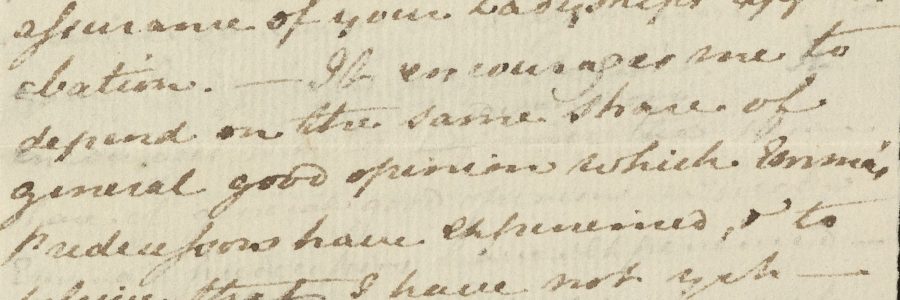 assurance of your Ladyship's app
bation. — It encourages me to
depend on the same share of
general good opinion which Emma's
Predecessors have experienced, & to
believe that I have not yet —